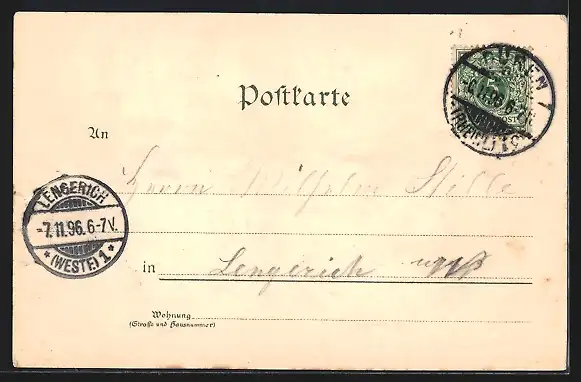 DÜREN
-6.11.96.6-7N.
(RHEINL.) 1
Postkarte
An
Herrn Wilhelm Stille
LENGERICH
-7.11.96.6-7V.
* (WESTF.) 1 *
in Lengerich
Wohnung
(Straße und Hausnummer)